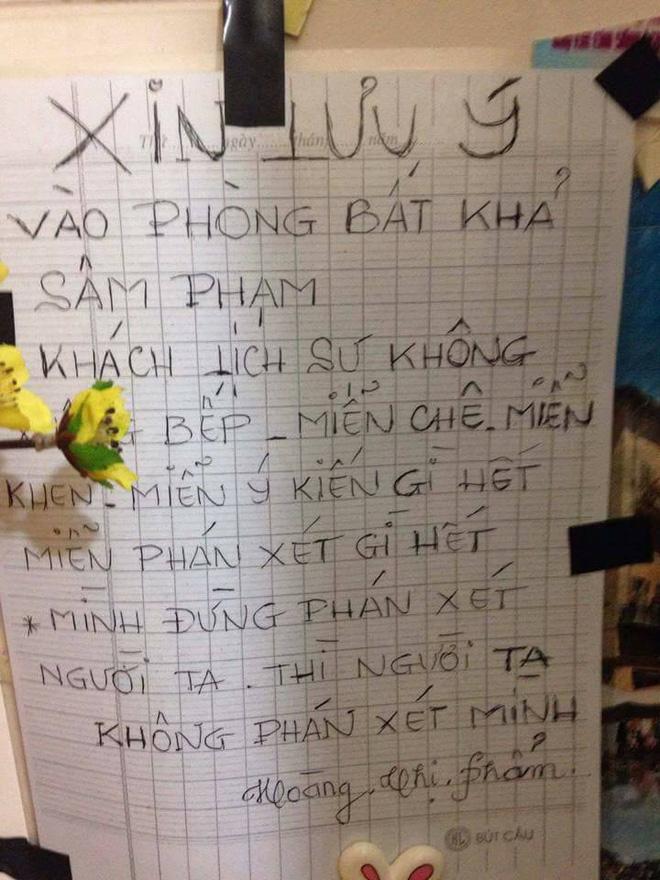 XIN LƯU Ý
Thứ ngày tháng năm
VÀO PHÒNG BẤT KHẢ
SÂM PHẠM
KHÁCH LỊCH SỰ KHÔNG
BẾP - MIỄN CHÊ - MIỄN
KHEN - MIỄN Ý KIẾN GÌ HẾT
MIỄN PHÁN XÉT GÌ HẾT
* MÌNH ĐỪNG PHÁN XÉT
NGƯỜI TA . THÌ NGƯỜI TA
KHÔNG PHÁN XÉT MÌNH
Hoàng . Thị . Phẩm .